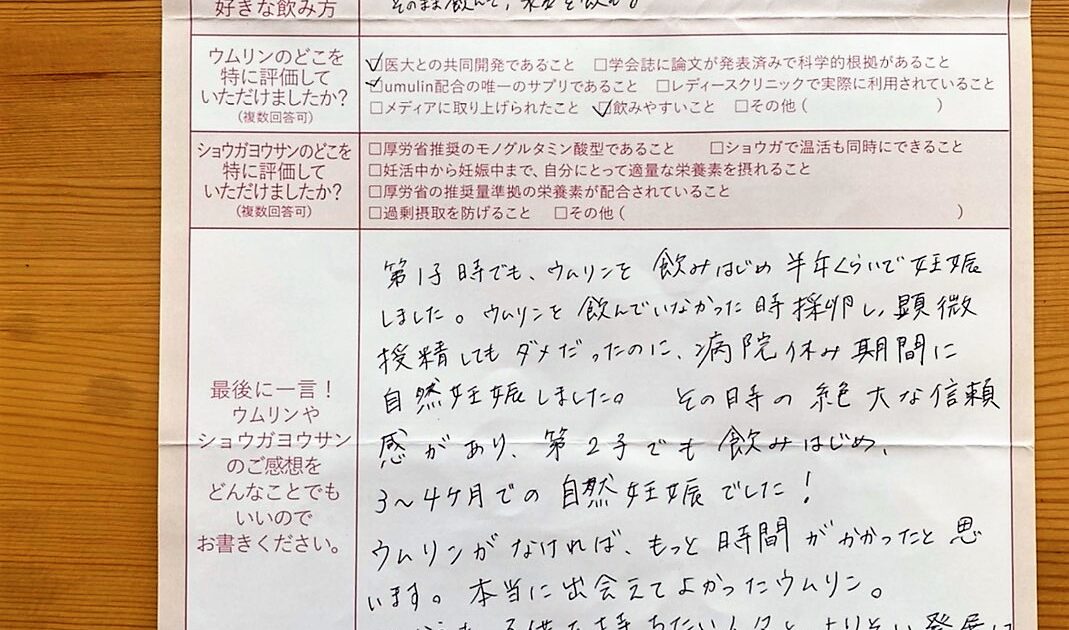 好きな飲み方
そのまま飲んで、
ウムリンのどこを
特に評価して
いただけましたか?
(複数回答可)
☑医大との共同開発であること □学会誌に論文が発表済みで科学的根拠があること
☑umulin配合の唯一のサプリであること □レディースクリニックで実際に利用されていること
□メディアに取り上げられたこと ☑飲みやすいこと □その他( )
ショウガヨウサンのどこを
特に評価して
いただけましたか?
(複数回答可)
□厚労省推奨のモノグルタミン酸型であること □ショウガで温活も同時にできること
□妊活中から妊娠中まで、自分にとって適量な栄養素を摂れること
□厚労省の推奨量準拠の栄養素が配合されていること
□過剰摂取を防げること □その他( )
最後に一言!
ウムリンや
ショウガヨウサン
のご感想を
どんなことでも
いいので
お書きください。
第1子時でも、ウムリンを飲みはじめ半年くらいで妊娠
しました。ウムリンを飲んでいなかった時採卵し、顕微
授精してもダメだったのに、病院休み期間に
自然妊娠しました。 その時の絶大な信頼
感があり、第2子でも飲みはじめ、
3〜4ケ月での自然妊娠でした!
ウムリンがなければ、もっと時間がかかったと思
います。本当に出会えてよかったウムリン。